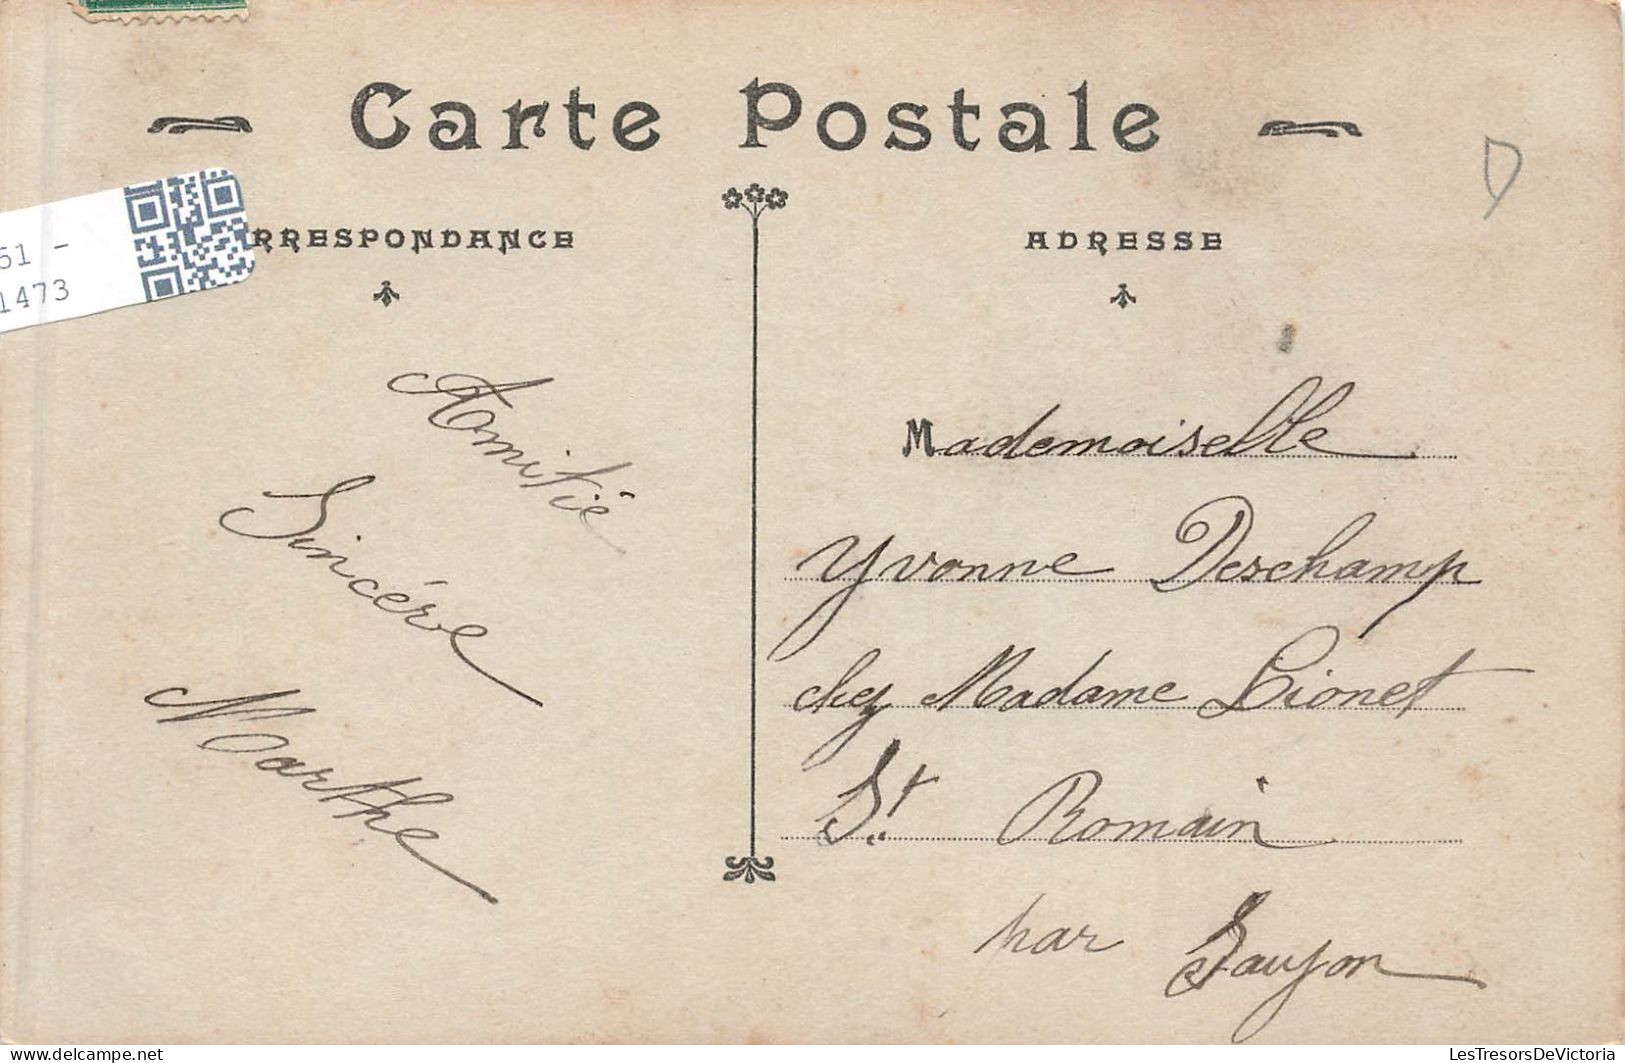 Carte Postale
D
61 -
1473
RRESPONDANCE
ADRESSE
Amitié
Sincère
Marthe
Mademoiselle
Yvonne Deschamp
chez Madame Lionet
St. Romain
par Saujon
www.delcampe.net
LesTresorsDeVictoria